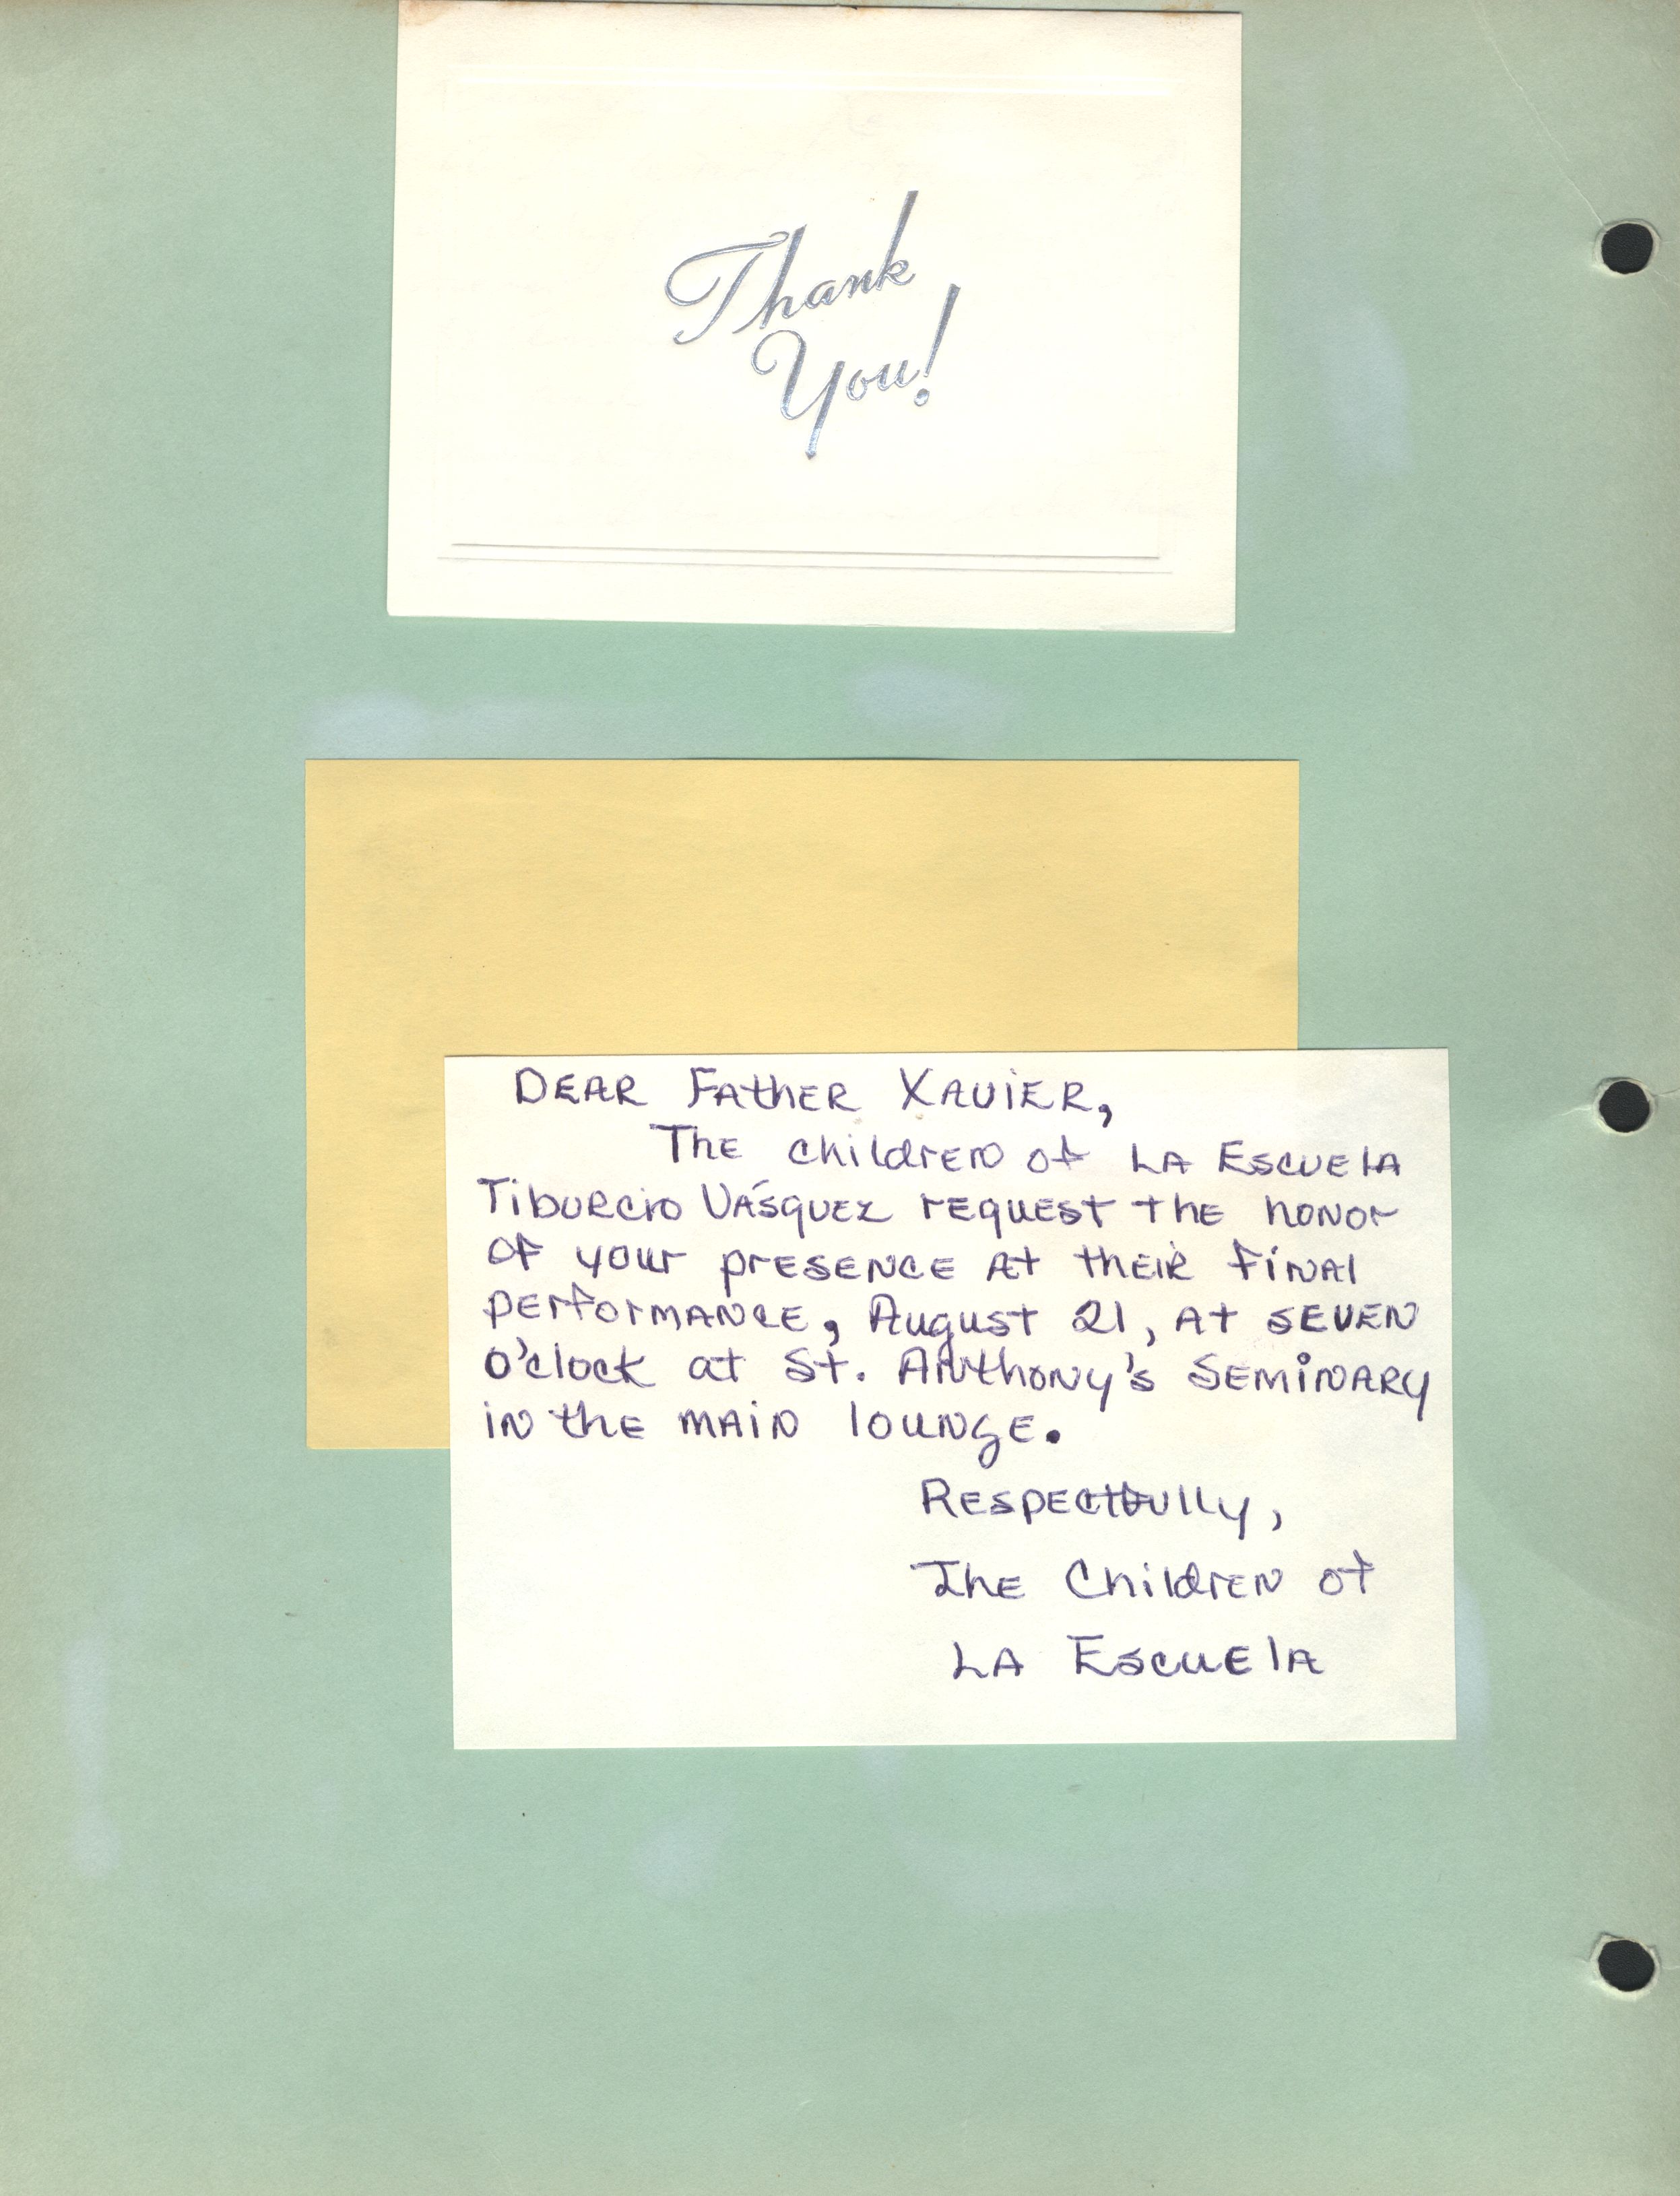 Thank
You!
Dear Father Xavier,
The children of La Escuela
Tiburcio Vásquez request the honor
of your presence at their final
performance, August 21, at seven
o'clock at St. Anthony's Seminary
in the main lounge.
Respectfully,
The Children of
La Escuela